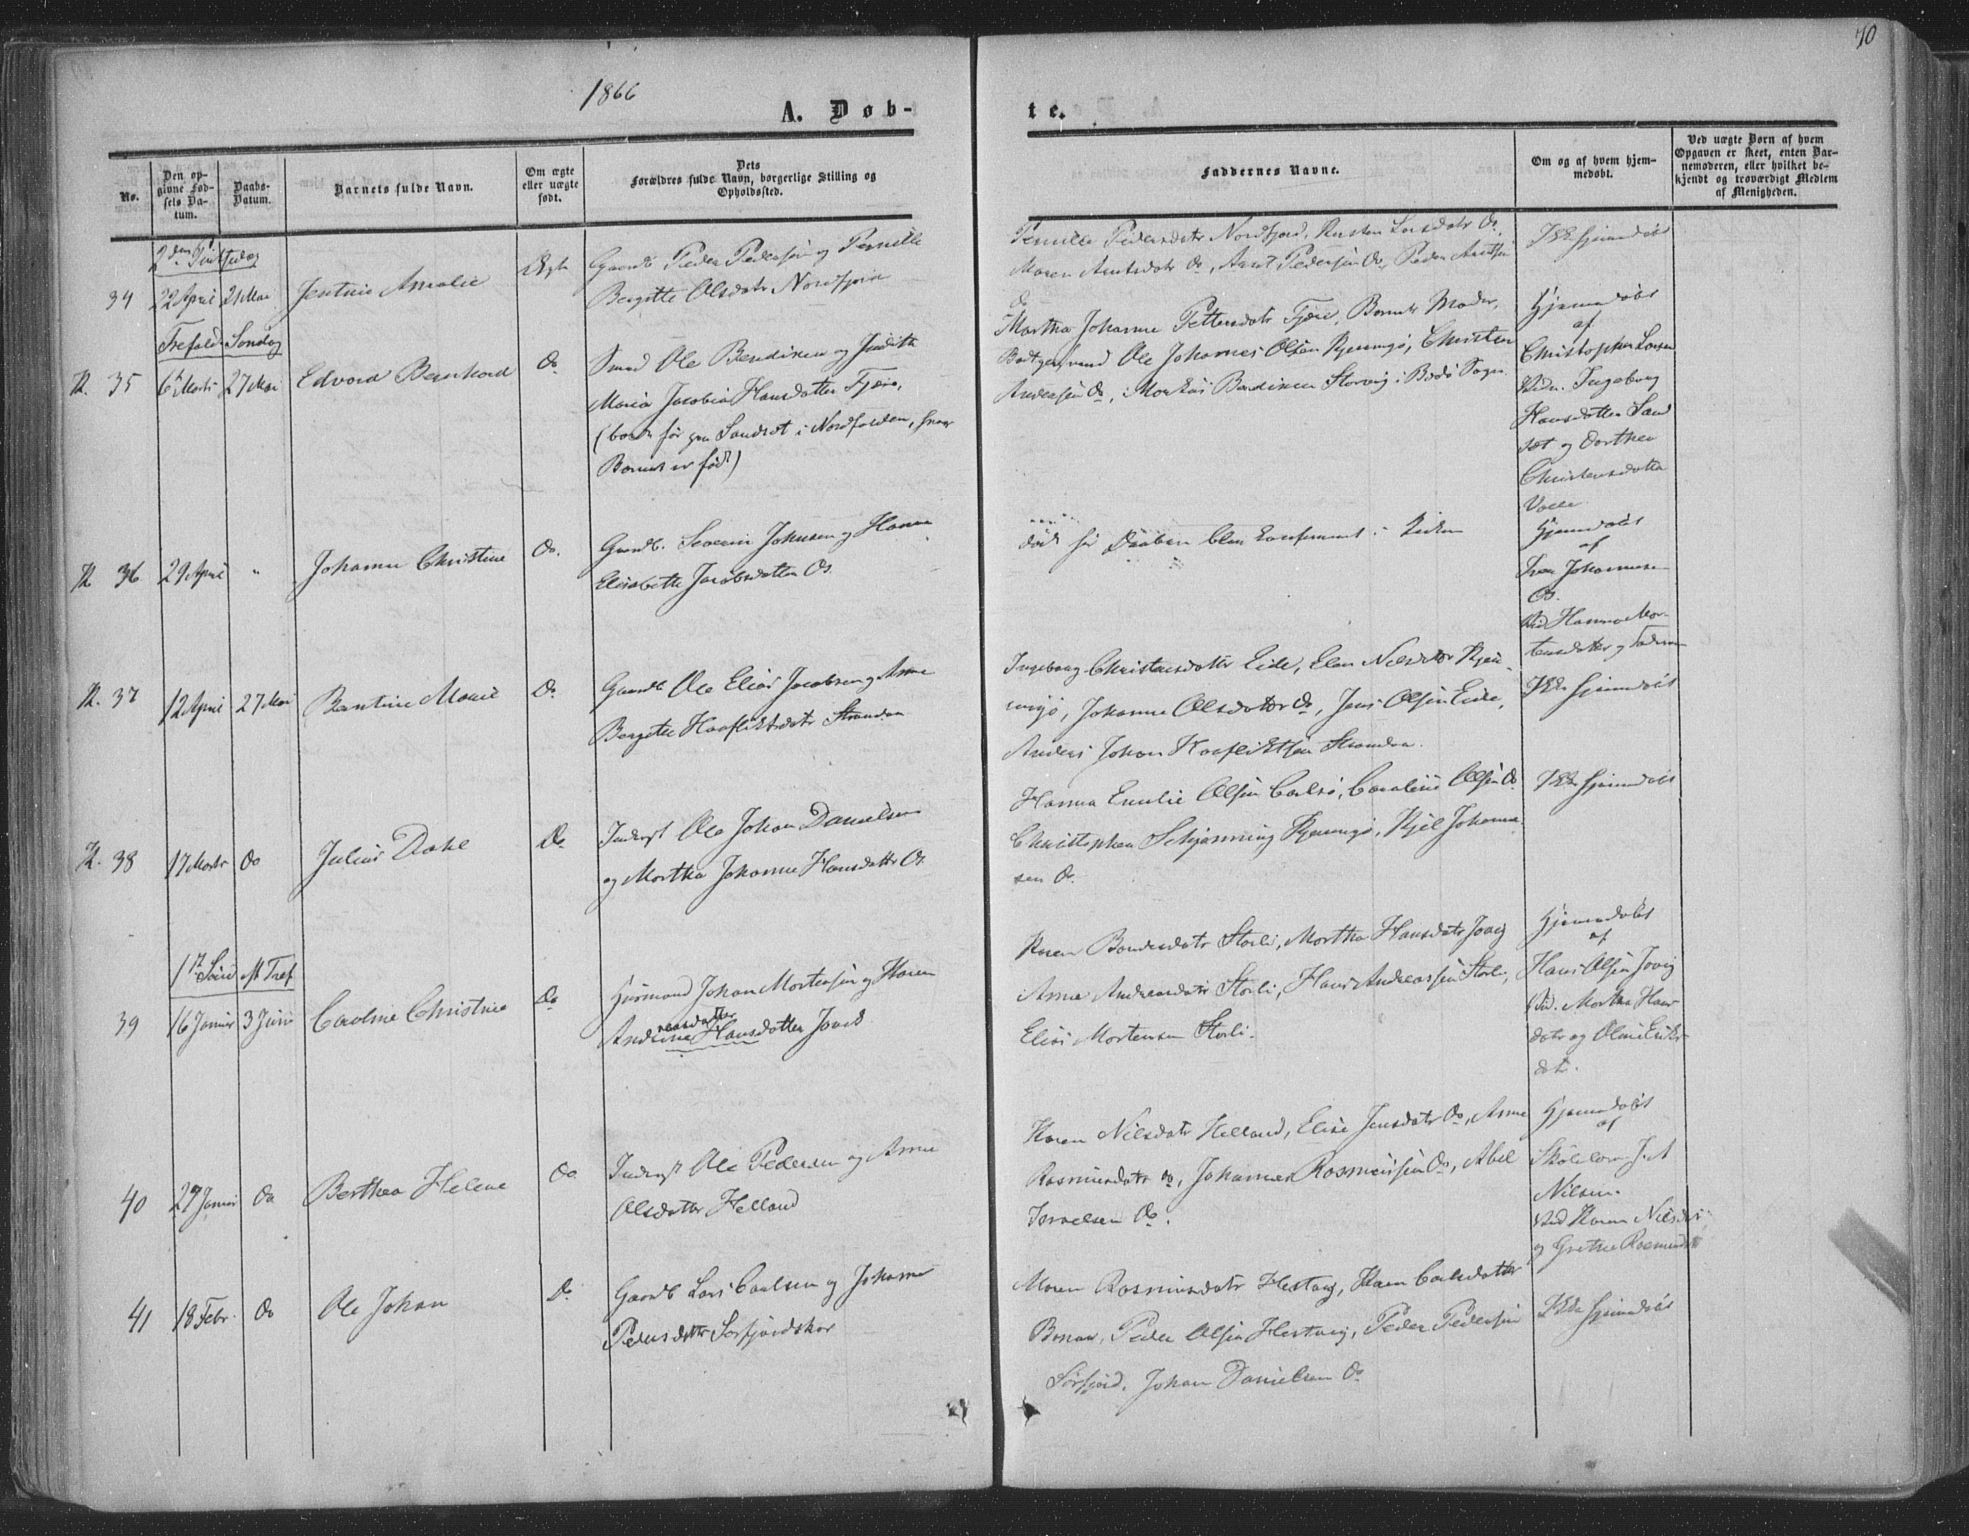 70
1866
A. Døb-
te.
No.
Den op-
givne Fød-
sels Da-
tum.
Daabs-
Datum.
Barnets fulde Navn.
Om ægte
eller uægte
født.
Dets
Forældres fulde Navn, borgerlige Stilling og
Opholdssted.
Faddernes Navne.
Om og af hvem hjem-
medøbt.
Ved uægte Børn af hvem
Opgaven er skeet, enten Bar-
nemoderen, eller hvilket be-
kjendt og troværdigt Medlem
af Menigheden.
2den Pintsedag
34 22 April 21 Mai Jentine Amalie Ægte
Gaardb Peder Pedersen og Pernille
Bergitte Olsdatr Nordfjord
Pernille Pedersdatr Nordfjord, Larsdatr Do,
Maren Arntsdatr Do, Arnt Pedersen Do, Peder Arntsen
Do
Ikke hjemmedøbt
Trefold. Søndag
K. 35 6 Marts 27 Mai Edvard Bernhard Do
Smed Ole Bendiksen og Judith
Maria Jacobia Hansdatter Tjære,
(boede før paa Sandset i Nordfolden, hvor
Barnet er født)
Martha Johanne Pettersdatr Tjære, Barnets Moder,
Ole Johannes Olsen Kjerringø, Christen
Andersen Do, Markus Bendiksen Storvig i Bodø Sogn.
Hjemmedøbt
af
Christopher Larsen
Vidn. Ingeborg
Hansdatter Sand
set og Dorthea
Christensdatter
Valle
K 36 29 April " Johanne Christine Do.
Gaardb. Severin Johnsen og Hanna
Elisabeth Jacobsdatter Os
død før Daaben blev konfirmeret i Kirken
Hjemmedøbt
af
Iver Johannesen
Os.
Vid Hanna Mor-
tensdatter og Faderen
K. 37 12 April 27 Mai Bentine Marie Do
Gaardb Ole Elias Jacobsen og Anne
Bergitte Haagliktsdatr Strandaa
Ingeborg Christensdatter Eide, Elen Nilsdatr Kjer-
ringø, Johanne Olsdatter Do, Jens Olsen Eide,
Anders Johan Strandaa.
Ikke hjemmedøbt
K. 38 17 Marts Do Julius Dahl Do
Inderst Ole Johan Danielsen
og Martha Johanne Hansdatter Os
Hanna Emilie Olsen Carlsø, Caroline Olsen Do
Christopher Schjønning Kjerringø, Kjel Johanne-
sen Do.
Ikke hjemmedøbt
1ste Sønd e Tref
39 16 Januar 3 Juni Caroline Christine Do
Husmand Johan Mortensen og Karen
reasdatter
Andrine Hansdatter Jovik
Karen Storli, Martha Hansdatr Jovig
Anne Andreasdatr Storli, Hans Andreassen Storli,
Elias Mortensen Storli.
Hjemmedøbt
af
Hans Olsen Jovig
Vid. Martha Hans-
datr og Oline Eriks-
datr.
40 29 Januar Do Berthea Helene Do
Inderst Ole Pedersen og Anne
Olsdatter Helland
Karen Nilsdatr Helland, Elise Jensdatr Do, Anne
Rasmusdatr Do, Johannes Rasmussen Do, Abel
Israelsen Do.
Hjemmedøbt
af
Skolelærer J. A
Nilsen.
Vid Karen Nilsd.
og Grethe Rasmusd
41 18 Febr. Do Ole Johan Do
Gaardb Lars Carlsen og Johanne
Pedersdatter Sørfjordskar
Maren Rasmusdatr Hestvig, Karen Carlsdatter
Bonaa, Peder Olsen Hestvig, Peder Pedersen
Sørfjord, Johan Danielsen Do
Ikke hjemmedøbt